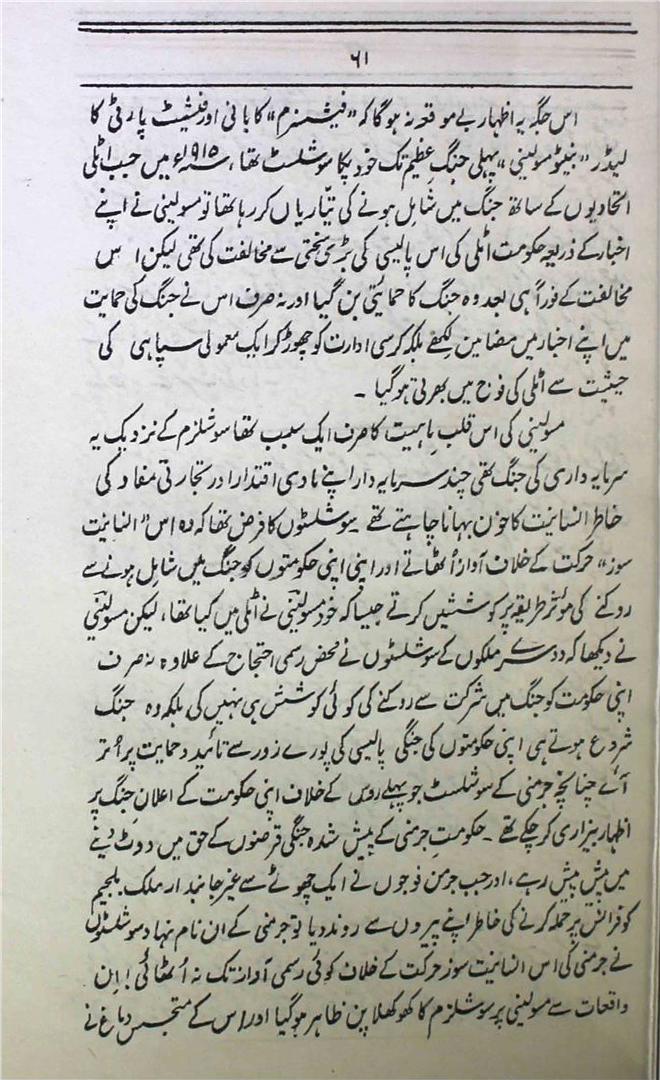 ۶۱
اس جگہ یہ اظہار بے موقعہ نہ ہوگا کہ ”فیشنزم“ کا بانی اور فیشیٹ پارٹی کا
لیڈر ”بنیٹو مسولینی“ پہلی جنگِ عظیم تک خود پکا سوشلسٹ تھا، ۱۹۱۵ء میں جب اٹلی
اتحادیوں کے ساتھ جنگ میں شامل ہونے کی تیّاریاں کر رہا تھا تو مسولینی نے اپنے
اخبار کے ذریعہ حکومت اٹلی کی اس پالیسی کی بڑی سختی سے مخالفت کی تھی لیکن اس
مخالفت کے فوراً ہی بعد وہ جنگ کا حمایتی بن گیا اور نہ صرف اس نے جنگ کی حمایت
میں اپنے اخبار میں مضامین لکھے بلکہ کرسی ادارت کو چھوڑ کر ایک معمولی سپاہی کی
حیثیت سے اٹلی کی فوج میں بھرتی ہوگیا ۔
مسولینی کی اس قلبِ ماہیت کا صرف ایک سبب تھا سوشلزم کے نزدیک یہ
سرمایہ داری کی جنگ تھی چند سرمایہ دار اپنے مادی اقتدار اور تجارتی مفاد کی
خاطر انسانیت کا خون بہانا چاہتے تھے ۔ سوشلسٹوں کا فرض تھا کہ وہ اس ”انسانیت
سوز“ حرکت کے خلاف آواز اُٹھاتے اور اپنی اپنی حکومتوں کو جنگ میں شامل ہونے سے
روکنے کی موٴثر طریقہ پر کوششیں کرتے جیسا کہ خود مسولینی نے اٹلی میں کیا تھا، لیکن مسولینی
نے دیکھا کہ دوسرے ملکوں کے سوشلسٹوں نے محض رسمی احتجاج کے علاوہ نہ صرف
اپنی حکومت کو جنگ میں شرکت سے روکنے کی کوئی کوشش ہی نہیں کی بلکہ وہ جنگ
شروع ہوتے ہی اپنی حکومتوں کی جنگی پالیسی کی پورے زور سے تائید و حمایت پر اُتر
آئے چنانچہ جرمنی کے سوشلسٹ جو پہلے روس کے خلاف اپنی حکومت کے اعلانِ جنگ پر
اظہار بیزاری کر چکے تھے ۔ حکومتِ جرمنی کے پیش شدہ جنگی قرضوں کے حق میں ووٹ دینے
میں پیش پیش رہے، اور جب جرمن فوجوں نے ایک چھوٹے سے غیر جانبدار ملک بلجیم
کو فرانس پر حملہ کرنے کی خاطر اپنے پیروں سے روند دیا تو جرمنی کے ان نام نہاد سوشلسٹوں
نے جرمنی کی اس انسانیت سوز حرکت کے خلاف کوئی رسمی آواز تک نہ اُٹھائی! اِن
واقعات سے مسولینی پر سوشلزم کا کھوکھلا پن ظاہر ہوگیا اور اس کے متجسس دماغ نے